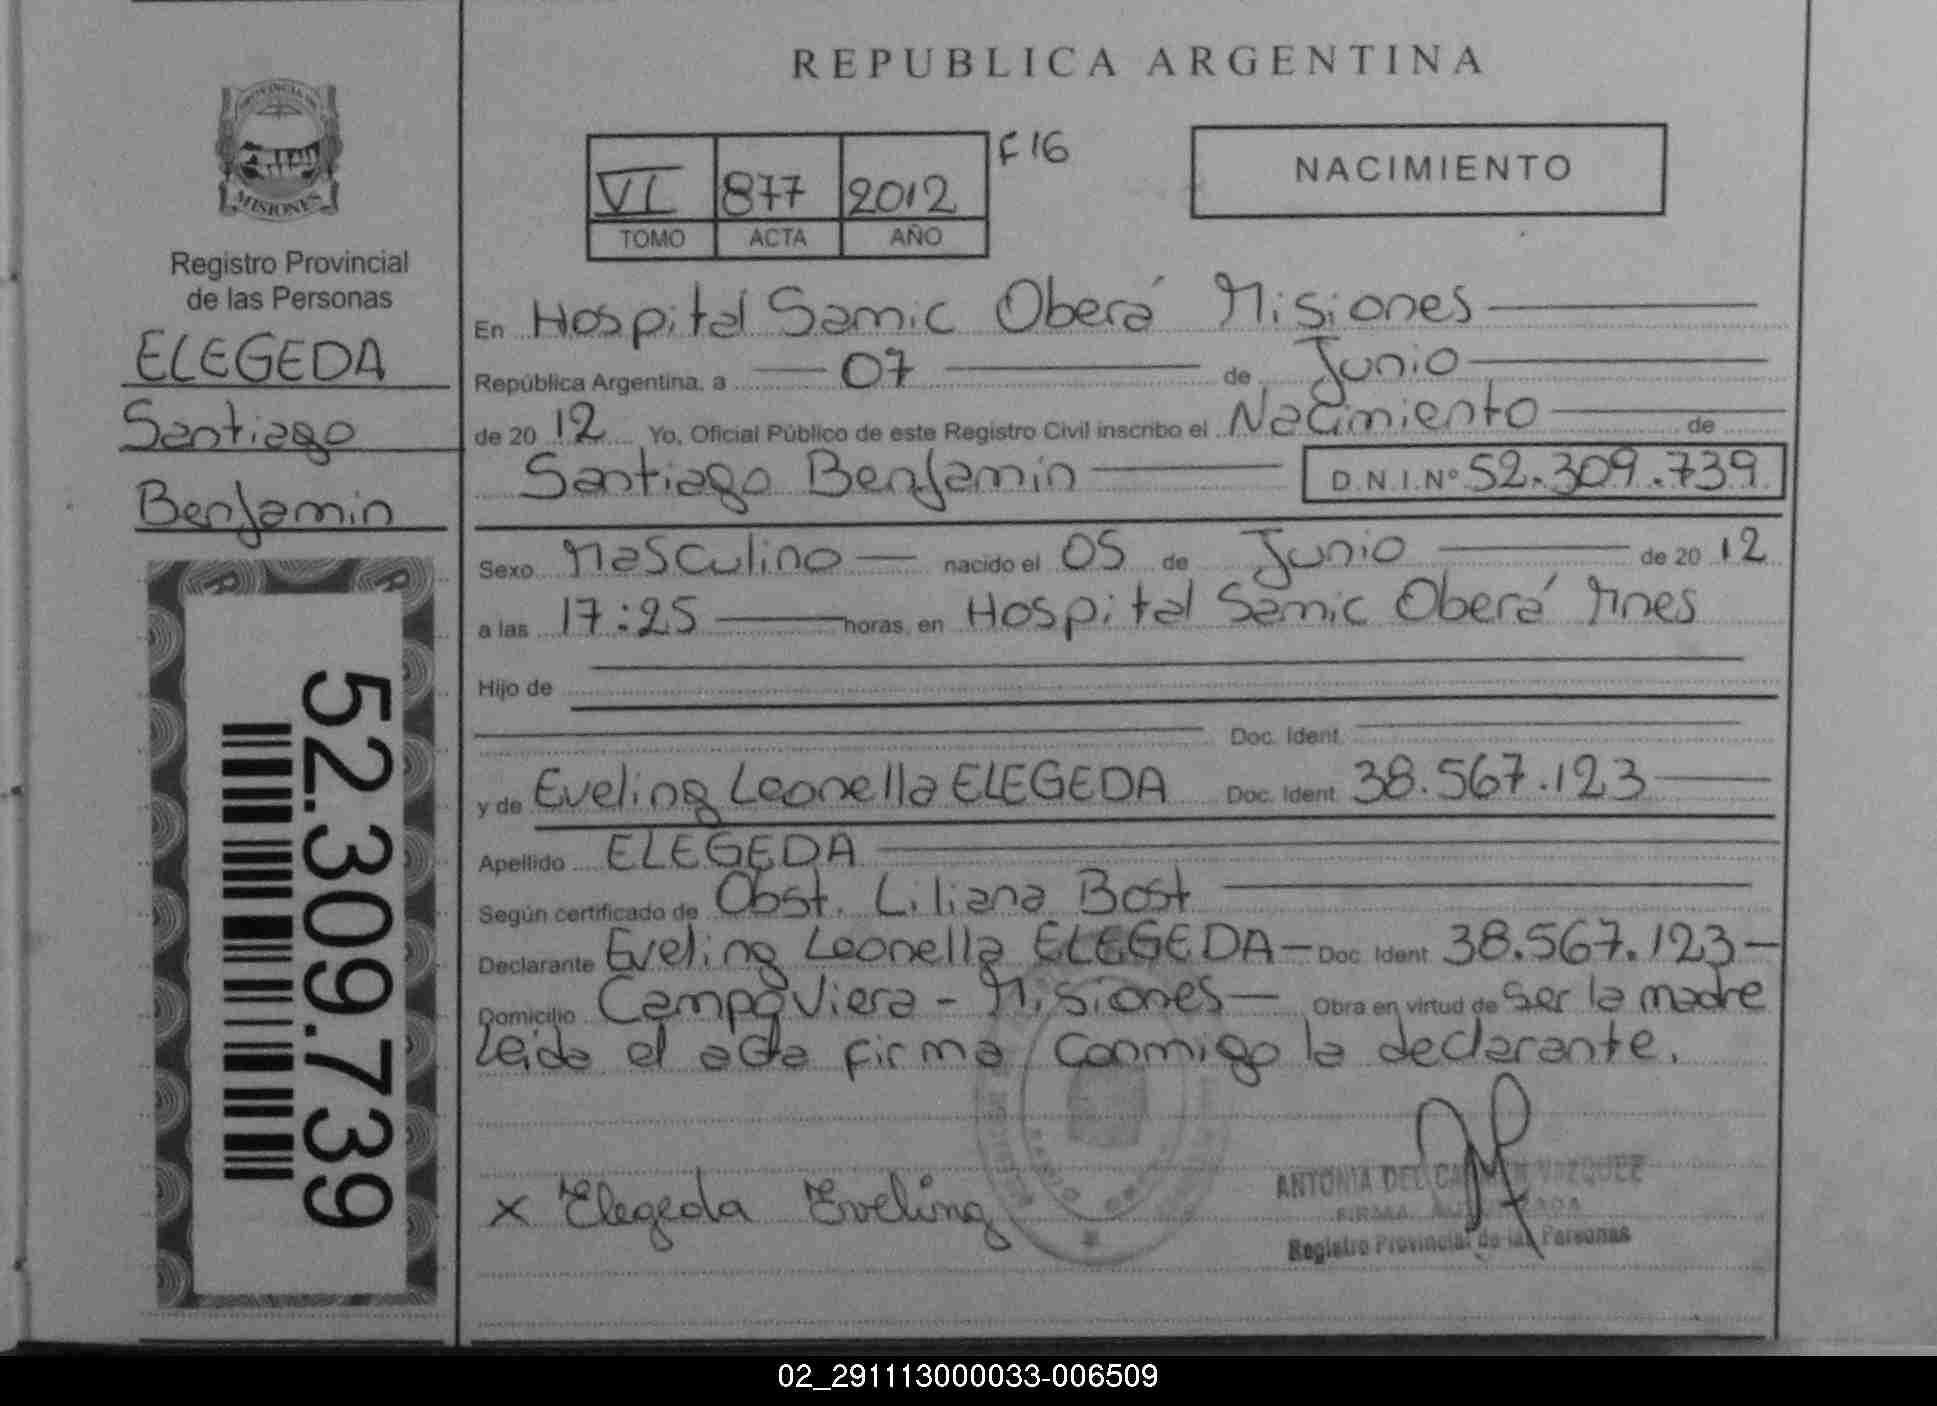 PROVINCIA DE
MISIONES
Registro Provincial
de las Personas
ELEGEDA
Santiago
Benjamin
52.309.739
REPUBLICA ARGENTINA
VI 877 2012 F 16
TOMO ACTA AÑO
NACIMIENTO
En Hospital Samic Oberá Misiones
República Argentina, a 07 de Junio
de 2012 Yo, Oficial Público de este Registro Civil inscribo el Nacimiento de
Santiago Benjamin D.N.I.Nº 52.309.739
Sexo Masculino nacido el 05 de Junio de 2012
a las 17:25 horas, en Hospital Samic Oberá Mnes
Hijo de
Doc. Ident.
y de Eveling Leonella ELEGEDA Doc. Ident. 38.567.123
Apellido ELEGEDA
Según certificado de Obst. Liliana Bost
Declarante Eveling Leonella ELEGEDA Doc. Ident. 38.567.123
Domicilio Campo Viera - Misiones Obra en virtud de ser la madre
Leida el acta firma conmigo la declarante.
x Elegeda Eveling
ANTONIA DEL CARMEN VAZQUEZ
FIRMA AUTORIZADA
Registro Provincial de las Personas
02_291113000033-006509